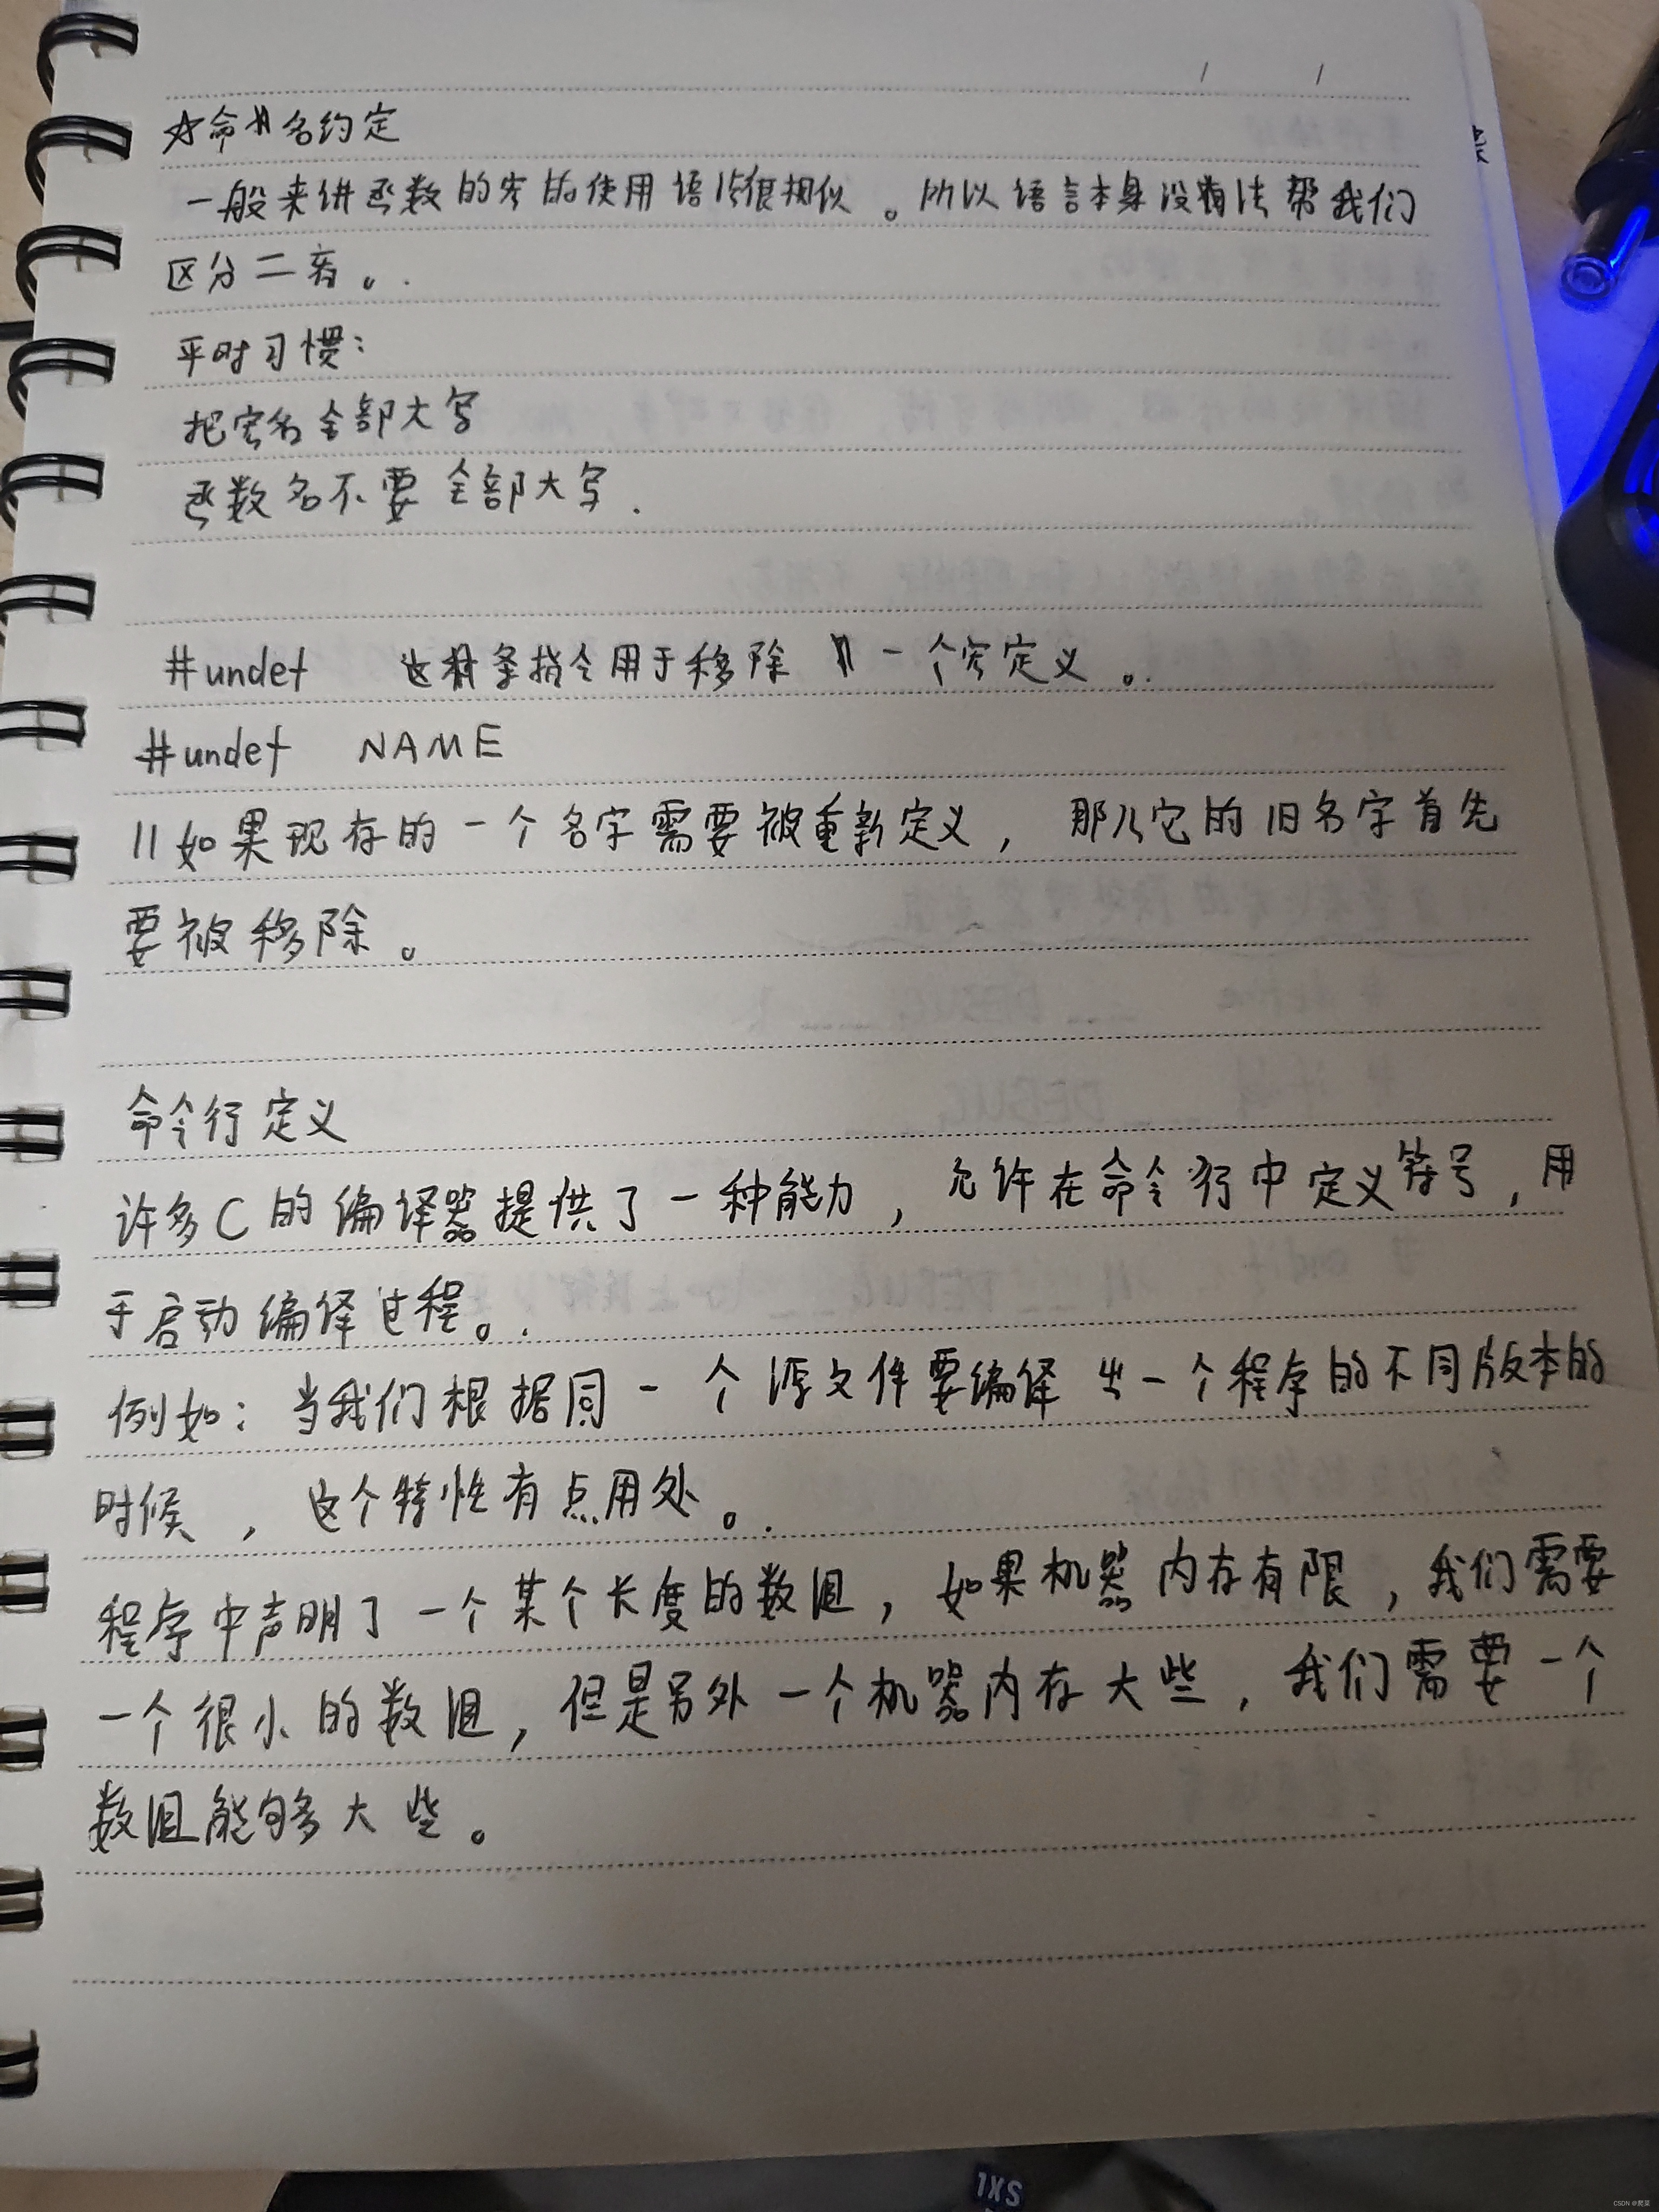 ☆命名约定
一般来讲函数的宏的使用语法很相似。所以语言本身没有法帮我们
区分二者。
平时习惯：
把宏名全部大写
函数名不要全部大写.
#undef 这条指令用于移除一个宏定义。
#undef NAME
//如果现存的一个名字需要被重新定义，那么它的旧名字首先
要被移除。
命令行定义
许多C的编译器提供了一种能力，允许在命令行中定义符号，用
于启动编译过程。
例如：当我们根据同一个源文件要编译出一个程序的不同版本的
时候，这个特性有点用处。
程序中声明了一个某个长度的数组，如果机器内存有限，我们需要
一个很小的数组，但是另外一个机器内存大些，我们需要一个
数组能够大些。
SXL
CSDN @爬菜